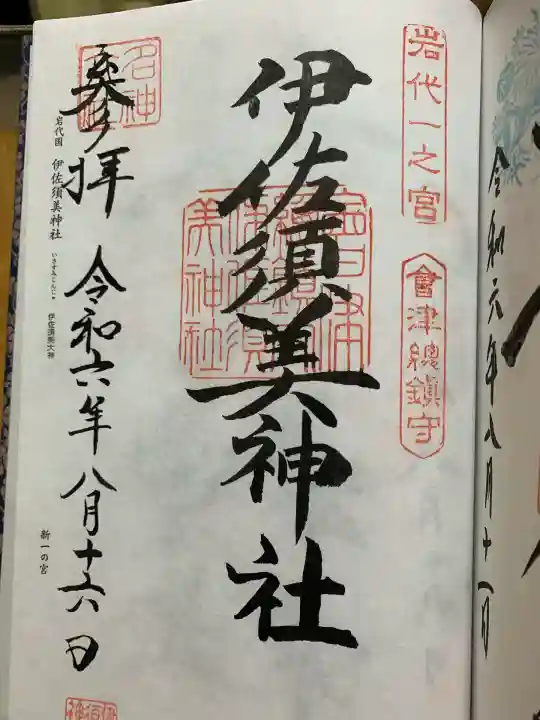 令和六年八月十一日
岩代一之宮
會津總鎮守
伊佐須美神社
參拝
令和六年八月十六日
名神
岩代国 伊佐須美神社
いさすみじんじゃ
伊佐須美大神
新一の宮